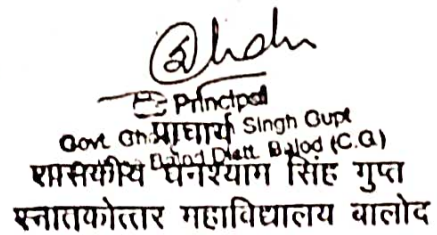 Principal
प्राचार्य
Govt Gh Singh Gupt
Balod Distt Balod (C.G)
शासकीय घनश्याम सिंह गुप्त
स्नातकोत्तर महाविद्यालय बालोद